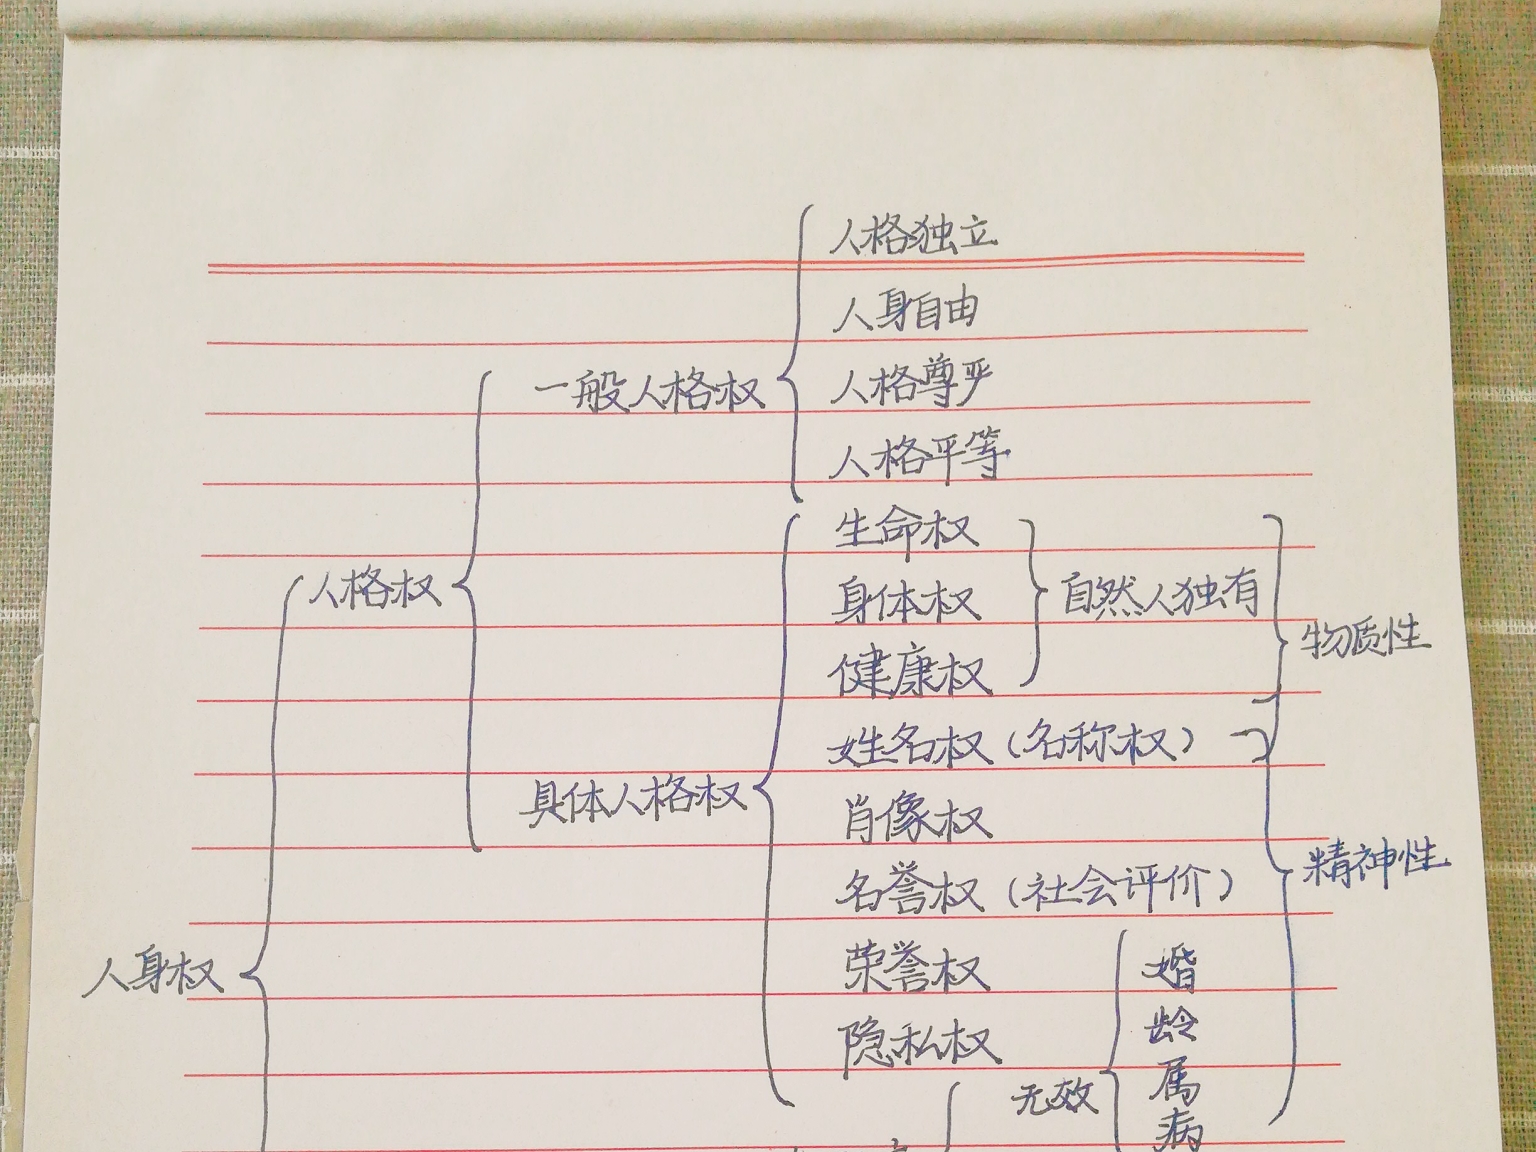 人格独立
人身自由
人格尊严
一般人格权
人格平等
生命权
人格权
身体权
自然人独有
健康权
物质性
姓名权（名称权）
具体人格权
肖像权
精神性
名誉权（社会评价）
人身权
荣誉权
婚
隐私权
龄
无效
属
病